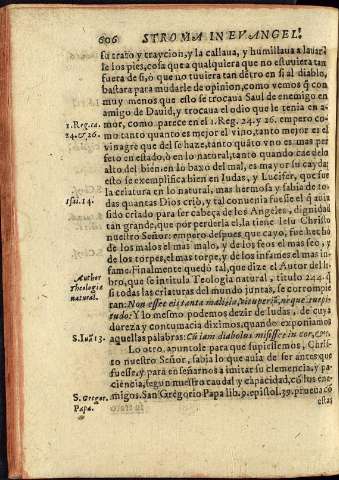 606 STROMA IN EVANGEL.
su trato y traycion, y la callaua, y humillaua a lauar
le los pies, cosa que a qualquiera que no estuuiera tan
fuera de si, ò que no tuuiera tan dẽtro en si al diablo,
bastara para mudarle de opinion, como vemos q̃ con
muy menos que esto se trocaua Saul de enemigo en
amigo de Dauid, y trocaua el odio que le tenia en a-
1.Reg.ca. mor, como parece en el 1. Reg. 24. y 26. empero co-
24.& 26. mo tanto quanto es mejor el vino, tanto mejor es el
vinagre que del se haze, tanto quãto vno es mas per
feto en estado, ò en lo natural, tanto quando cae delo
alto del bien, en lo baxo del mal, es mayor su cayda;
esto se exemplifica bien en Iudas, y Lucifer, que fue
la criatura en lo natural, mas hermosa y sabia de to-
Isai.14. das quantas Dios criò, y tal conuenia fuesse el q̃ auia
sido criado para ser cabeça de los Angeles, dignidad
tan grande, que por perderla el, la tiene Iesu Christo
nuestro Señor: empero despues que cayo, fue hecho
de los malos el mas malo, y de los feos el mas feo, y
de los torpes, el mas torpe, y de los infames el mas in-
Author fame. Finalmente quedò tal, que dize el Autor del li-
Theologiæ bro, que se intitula Teologia natural, titulo 244. q̃
naturæl. si todas las criaturas del mundo juntas, se corrompie
ran: Non esset eis tanta malitia, vituperiũ, neque turpi-
tudo: Y lo mesmo podemos dezir de Iudas, de cuya
dureza y contumacia diximos, quando exponiamos
S.Iuã 13. aquellas palabras: Cũ iam diabolus misisset in cor, &c.
Lo otro, apuntole para que supiessemos, Chris-
to nuestro Señor, sabia lo que auia de ser antes que
fuesse, y para enseñarnos a imitar su clemencia, y pa-
ciencia, segun nuestro caudal y capacidad, cõ los ene-
S. Gregor. migos. San Gregorio Papa lib. 9. epistol. 39. prueua cõ
Papa. estas